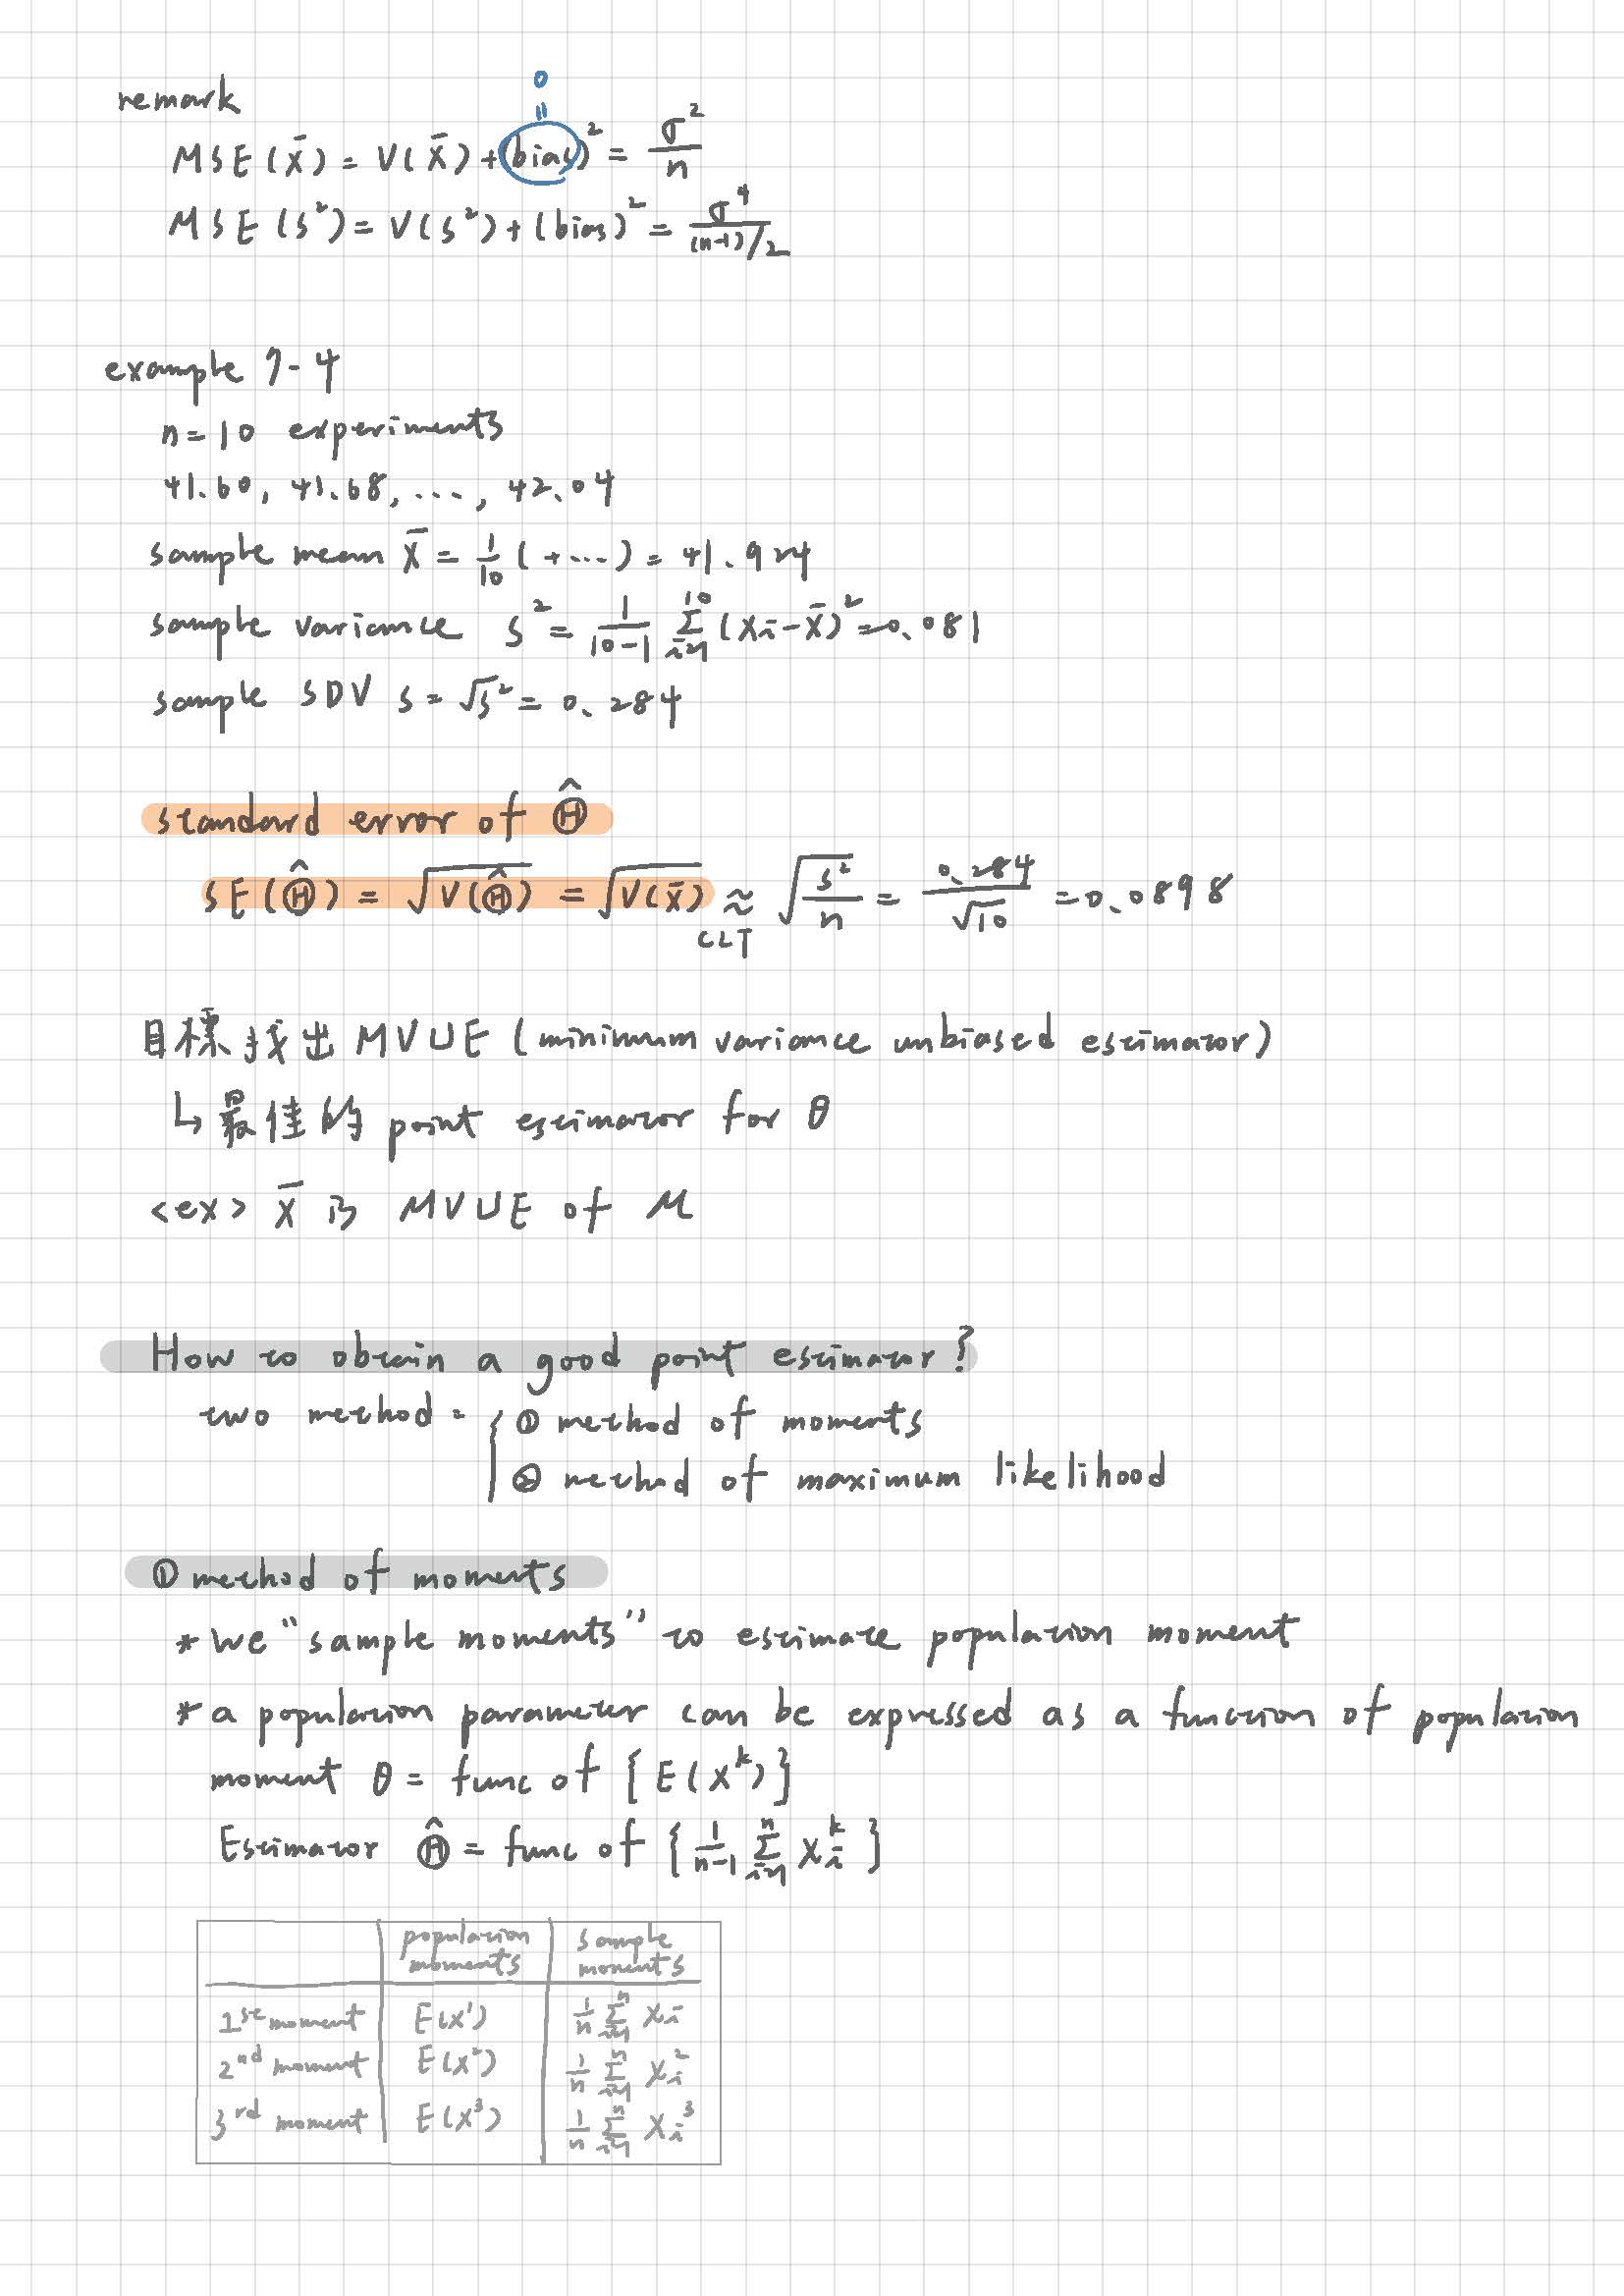 remark
0
=
MSE(X̄) = V(X̄) + (bias)² = σ²/n
MSE(S²) = V(S²) + (bias)² = σ⁴/((n-1)/2)
example 7-4
n=10 experiments
41.60, 41.68, ..., 42.04
sample mean X̄ = 1/10 (+...) = 41.924
sample variance S² = 1/(10-1) Σ_{i=1}^{10} (Xi-X̄)² = 0.081
sample SDV S = √S² = 0.284
standard error of Θ̂
SE(Θ̂) = √V(Θ̂) = √V(X̄) ≈ √(S²/n) = 0.284/√10 = 0.0898
CLT
目標找出 MVUE (minimum variance unbiased estimator)
↳ 最佳的 point estimator for θ
<ex> X̄ is MVUE of μ
How to obtain a good point estimator?
two method = { ① method of moments
② method of maximum likelihood
① method of moments
* we "sample moments" to estimate population moment
* a population parameter can be expressed as a function of population
moment θ = func of {E(X^k)}
Estimator Θ̂ = func of {1/(n-1) Σ_{i=1}^{n} X_i^k}
population moments | sample moments
1st moment | E(X¹) | 1/n Σ_{i=1}^{n} Xi
2nd moment | E(X²) | 1/n Σ_{i=1}^{n} Xi²
3rd moment | E(X³) | 1/n Σ_{i=1}^{n} Xi³